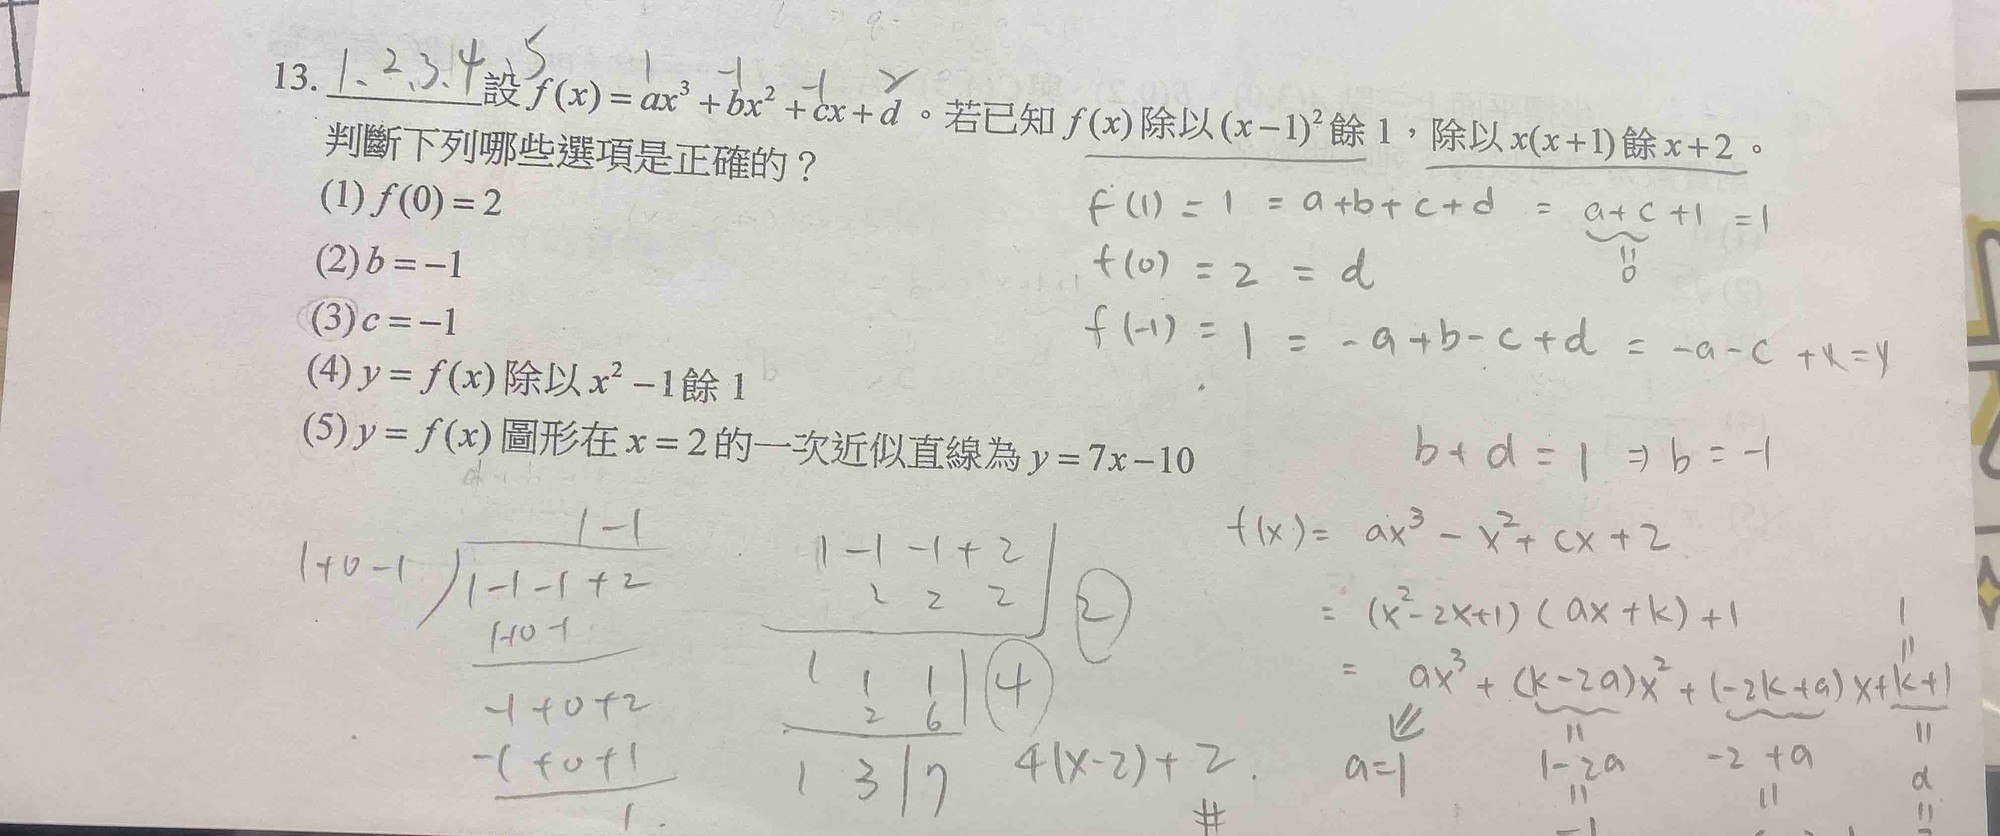 1、2、3、4、5
1 -1 -1 2
13. 設 f(x) = ax³ + bx² + cx + d 。若已知 f(x) 除以 (x−1)² 餘 1，除以 x(x+1) 餘 x+2。
判斷下列哪些選項是正確的？
(1) f(0) = 2
(2) b = −1
(3) c = −1
(4) y = f(x) 除以 x² −1 餘 1
(5) y = f(x) 圖形在 x = 2 的一次近似直線為 y = 7x −10
f(1) = 1 = a+b+c+d = a+c+1 = 1
0
f(0) = 2 = d
f(-1) = 1 = -a+b-c+d = -a-c
b+d = 1 ⇒ b = -1
f(x) = ax³ - x² + cx + 2
= (x²-2x+1)(ax+k)+1
= ax³ + (k-2a)x² + (-2k+a)x + k+1
1
a=1 1-2a -2+a d
-1
1-1
1+0-1 1-1-1+2
1+0-1
-1+0+2
-1+0+1
1
1 -1 -1 +2 2
2 2 2
1 1 1 4
2 6
1 3 7
4(x-2)+2
#